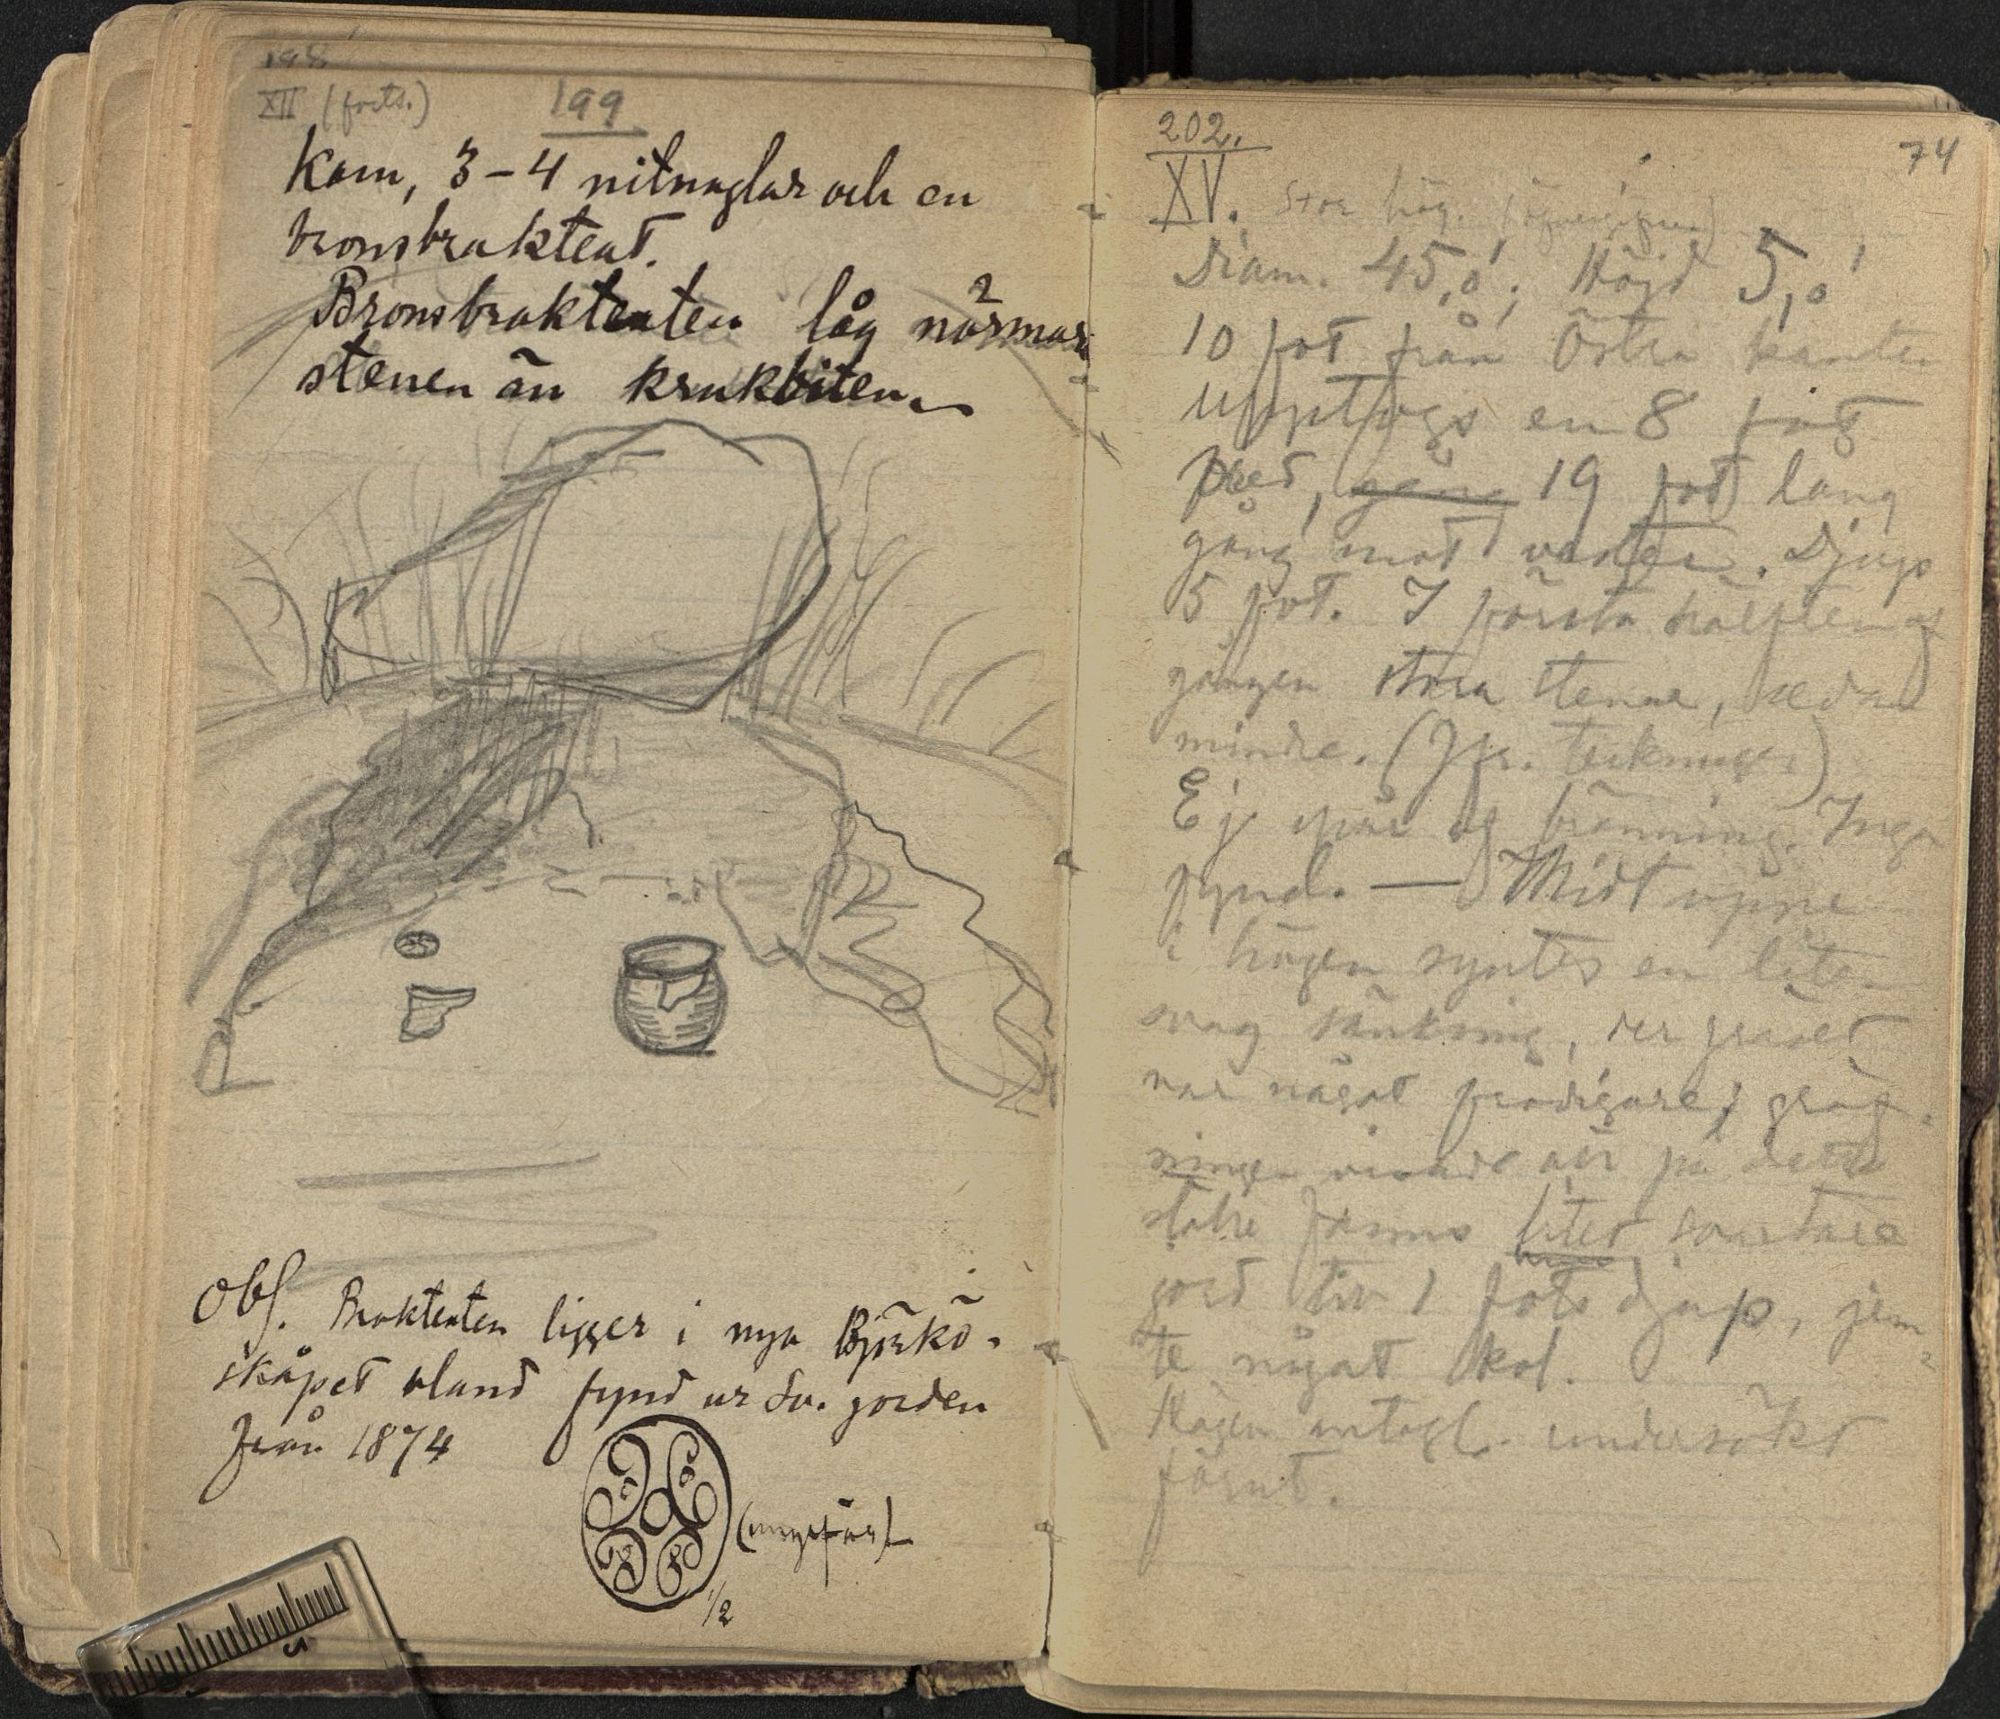 XII (forts.)
199
Kam, 3-4 nitnaglar och en
bronsbrakteat.
Bronsbrakteaten låg närmare
stenen än krukbiten.
Obs. Brakteaten ligger i nya Björkö-
skåpet bland fynd ur Sv. jorden
från 1874
(ungefär)
1/2
202.
74
XV. Stor hög.
Diam. 45,0'; Höjd 5,0'
10 fot från Östra kanten
upptogs en 8 fot
bred, gång 19 fot lång
gång mot vester. Djup
5 fot. I första hälften af
gången stora stenar, sedan
mindre. (Jfr. teckning.)
Ej spår af bränning. Inga
fynd. — Midt uppe
i högen syntes en liten
svag sänkning, der gräset
var något frodigare; gräf-
ningen visade att på detta
ställe fanns liten svartare
jord till 1 fots djup, jem-
te något kol.
Högen antagl. undersökt
förut.